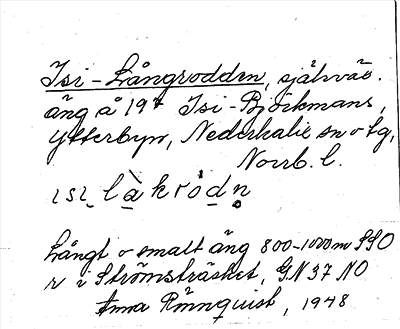 Isi-Långrodden, självväs.
äng å 19⁴ Isi-Björkmans,
Ytterbyn, Nederkalix sn o tg,
Norrb. l.
ɪsɪ̱ là̱króḏn̥
Långt o smalt äng 800-1000 m SSO
r i Strömsträsket, GN 37 NO
Anna Rönnquist, 1948